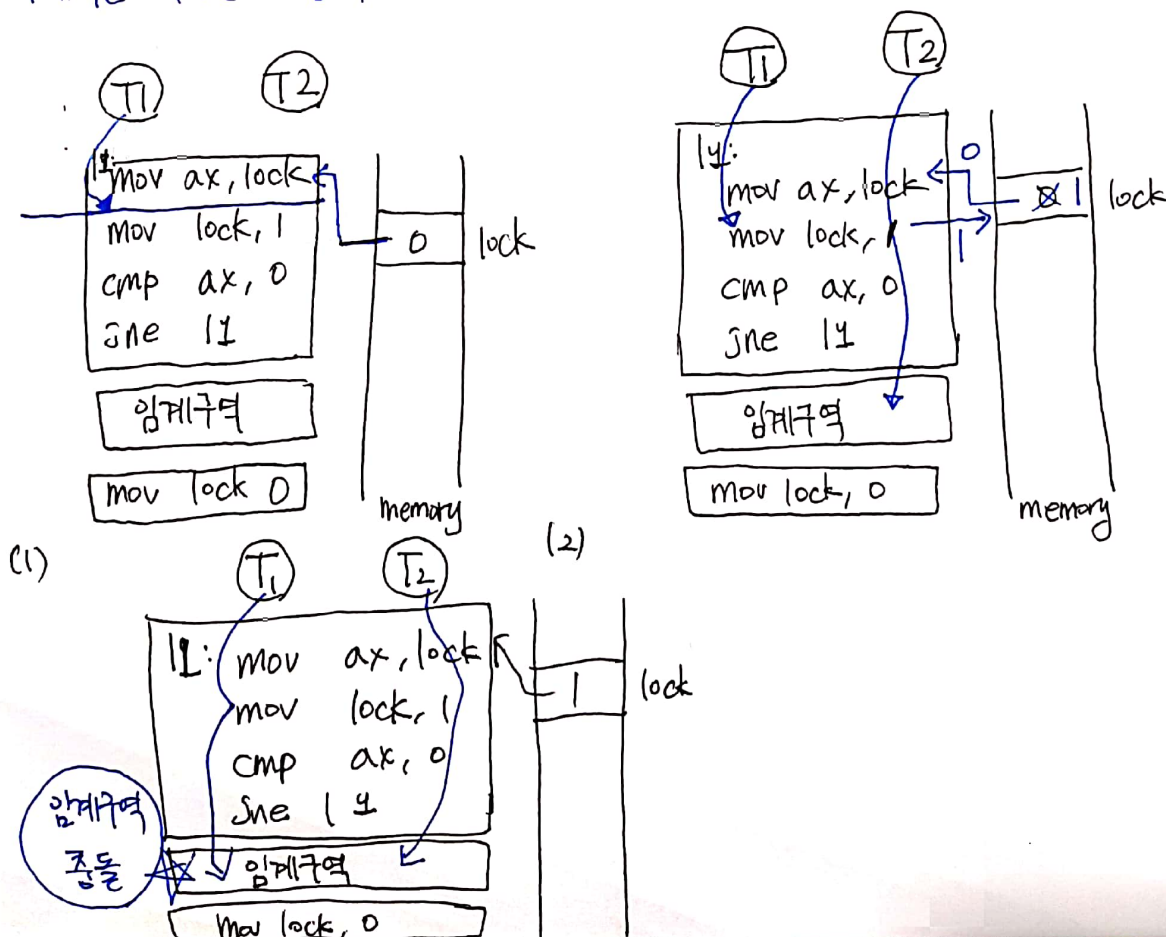 T1
T2
l1:
mov ax, lock
mov lock, 1
cmp ax, 0
jne l1
임계구역
mov lock 0
0
lock
memory
(1)
T1
T2
l1:
mov ax, lock
mov lock, 1
cmp ax, 0
jne l1
임계구역
mov lock, 0
0
1
0 1
lock
memory
(2)
T1
T2
l1: mov ax, lock
mov lock, 1
cmp ax, 0
jne l1
임계구역
mov lock, 0
1
lock
임계구역
충돌